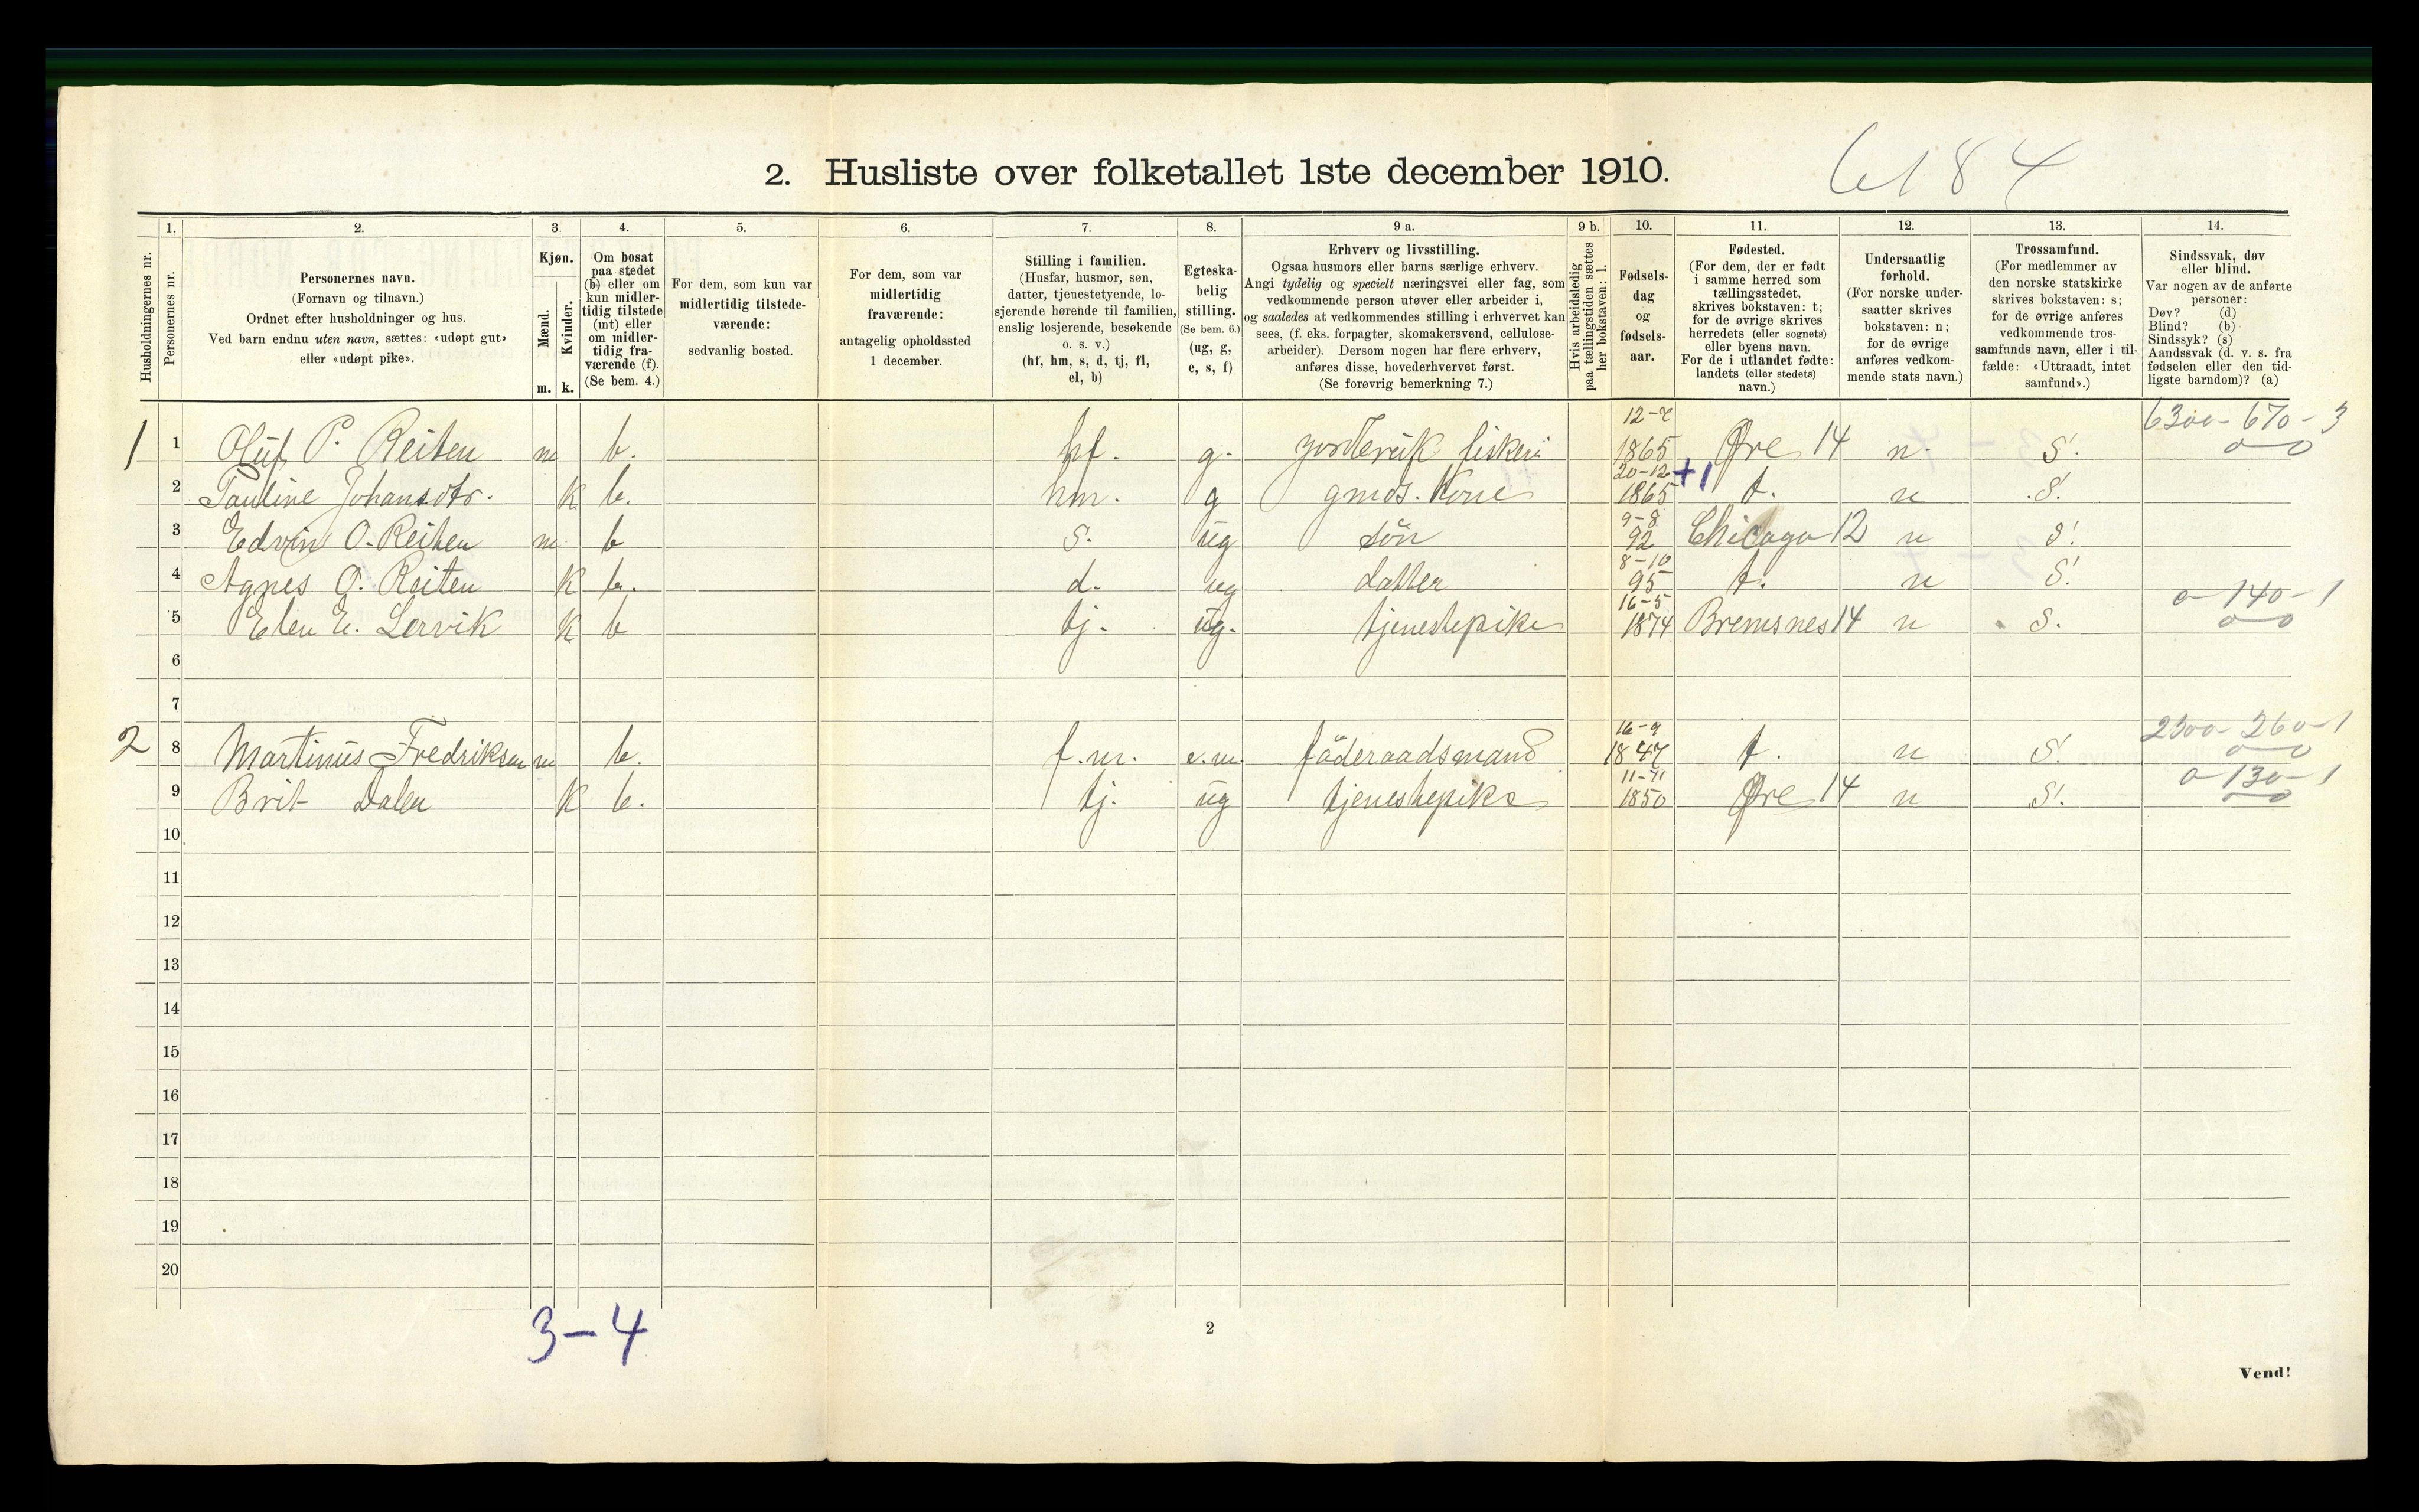 2. Husliste over folketallet 1ste december 1910.
6184
Husholdningernes nr.
1.
Personernes nr.
2.
Personernes navn.
(Fornavn og tilnavn.)
Ordnet efter husholdninger og hus.
Ved barn endnu uten navn, sættes: «udøpt gut»
eller «udøpt pike».
3.
Kjøn.
Mænd.
Kvinder.
m. k.
4.
Om bosat
paa stedet
(b) eller om
kun midler-
tidig tilstede
(mt) eller
om midler-
tidig fra-
værende (f).
(Se bem. 4.)
5.
For dem, som kun var
midlertidig tilstede-
værende:
sedvanlig bosted.
6.
For dem, som var
midlertidig
fraværende:
antagelig opholdssted
1 december.
7.
Stilling i familien.
(Husfar, husmor, søn,
datter, tjenestetyende, lo-
sjerende hørende til familien,
enslig losjerende, besøkende
o. s. v.)
(hf, hm, s, d, tj, fl,
el, b)
8.
Egteska-
belig
stilling.
(Se bem. 6.)
(ug, g,
e, s, f)
9 a.
Erhverv og livsstilling.
Ogsaa husmors eller barns særlige erhverv.
Angi tydelig og specielt næringsvei eller fag, som
vedkommende person utøver eller arbeider i,
og saaledes at vedkommendes stilling i erhvervet kan
sees, (f. eks. forpagter, skomakersvend, cellulose-
arbeider). Dersom nogen har flere erhverv,
anføres disse, hovederhvervet først.
(Se forøvrig bemerkning 7.)
9 b.
Hvis arbeidsledig
paa tællingstiden sættes
her bokstaven: l.
10.
Fødsels-
dag
og
fødsels-
aar.
11.
Fødested.
(For dem, der er født
i samme herred som
tællingsstedet,
skrives bokstaven: t;
for de øvrige skrives
herredets (eller sognets)
eller byens navn.
For de i utlandet fødte:
landets (eller stedets)
navn.)
12.
Undersaatlig
forhold.
(For norske under-
saatter skrives
bokstaven: n;
for de øvrige
anføres vedkom-
mende stats navn.)
13.
Trossamfund.
(For medlemmer av
den norske statskirke
skrives bokstaven: s;
for de øvrige anføres
vedkommende tros-
samfunds navn, eller i til-
fælde: «Uttraadt, intet
samfund».)
14.
Sindssvak, døv
eller blind.
Var nogen av de anførte
personer:
Døv? (d)
Blind? (b)
Sindssyk? (s)
Aandssvak (d. v. s. fra
fødselen eller den tid-
ligste barndom)? (a)
1 1 Oluf P. Reiten m b. hf. g. 1865 Øre 14 n. S. 6300-670-3
2 Pauline Johansdtr. k b. hm. g gmds. Kone 20-12 1865 +1 t. n S.
3 Edvin O. Reiten m b s. ug sön 9-8 92 Chicago 12 n S.
4 Agnes O. Reiten k b. d. ug datter 8-10 95 t. n S.
5 Elen E. Lervik k b tj. ug. tjenestepike 16-5 1874 Bremsnes 14 n S. 0-140-1
6
7
2 8 Martinus Fredriksen m b. f.m. e.m. föderaadsmand 16-9 1847 t. n S. 2300-260-1
9 Brit Dalen k b. tj. ug tjenestepike 11-11 1850 Øre 14 n S. 0-130-1
10
11
12
13
14
15
16
17
18
19
20
3-4
2
Vend!